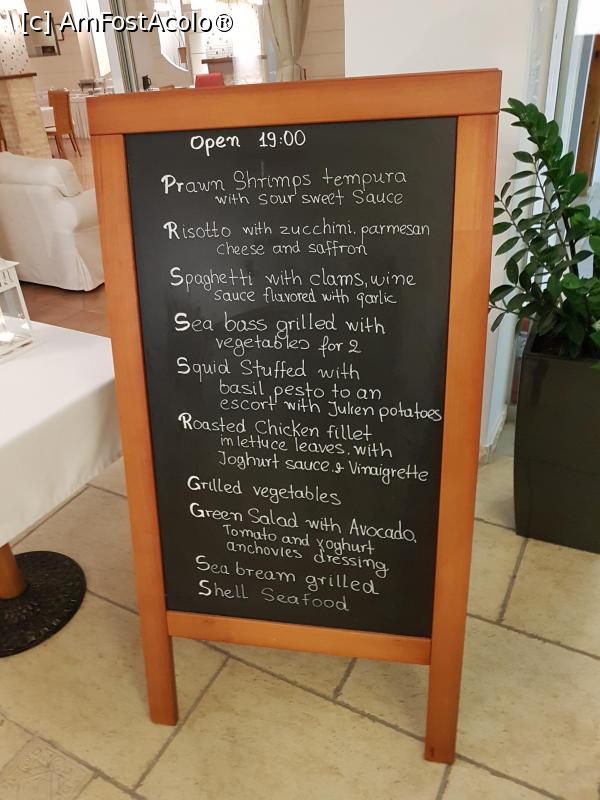 [c] AmFostAcolo®
Open 19:00
Prawn Shrimps tempura
with sour sweet Sauce
Risotto with zucchini, parmesan
cheese and saffron
Spaghetti with clams, wine
sauce flavored with garlic
Sea bass grilled with
vegetables for 2
Squid Stuffed with
basil pesto to an
escort with Julien potatoes
Roasted Chicken fillet
in lettuce leaves, with
Joghurt sauce & Vinaigrette
Grilled vegetables
Green Salad with Avocado,
Tomato and yoghurt
anchovies dressing
Sea bream grilled
Shell Seafood